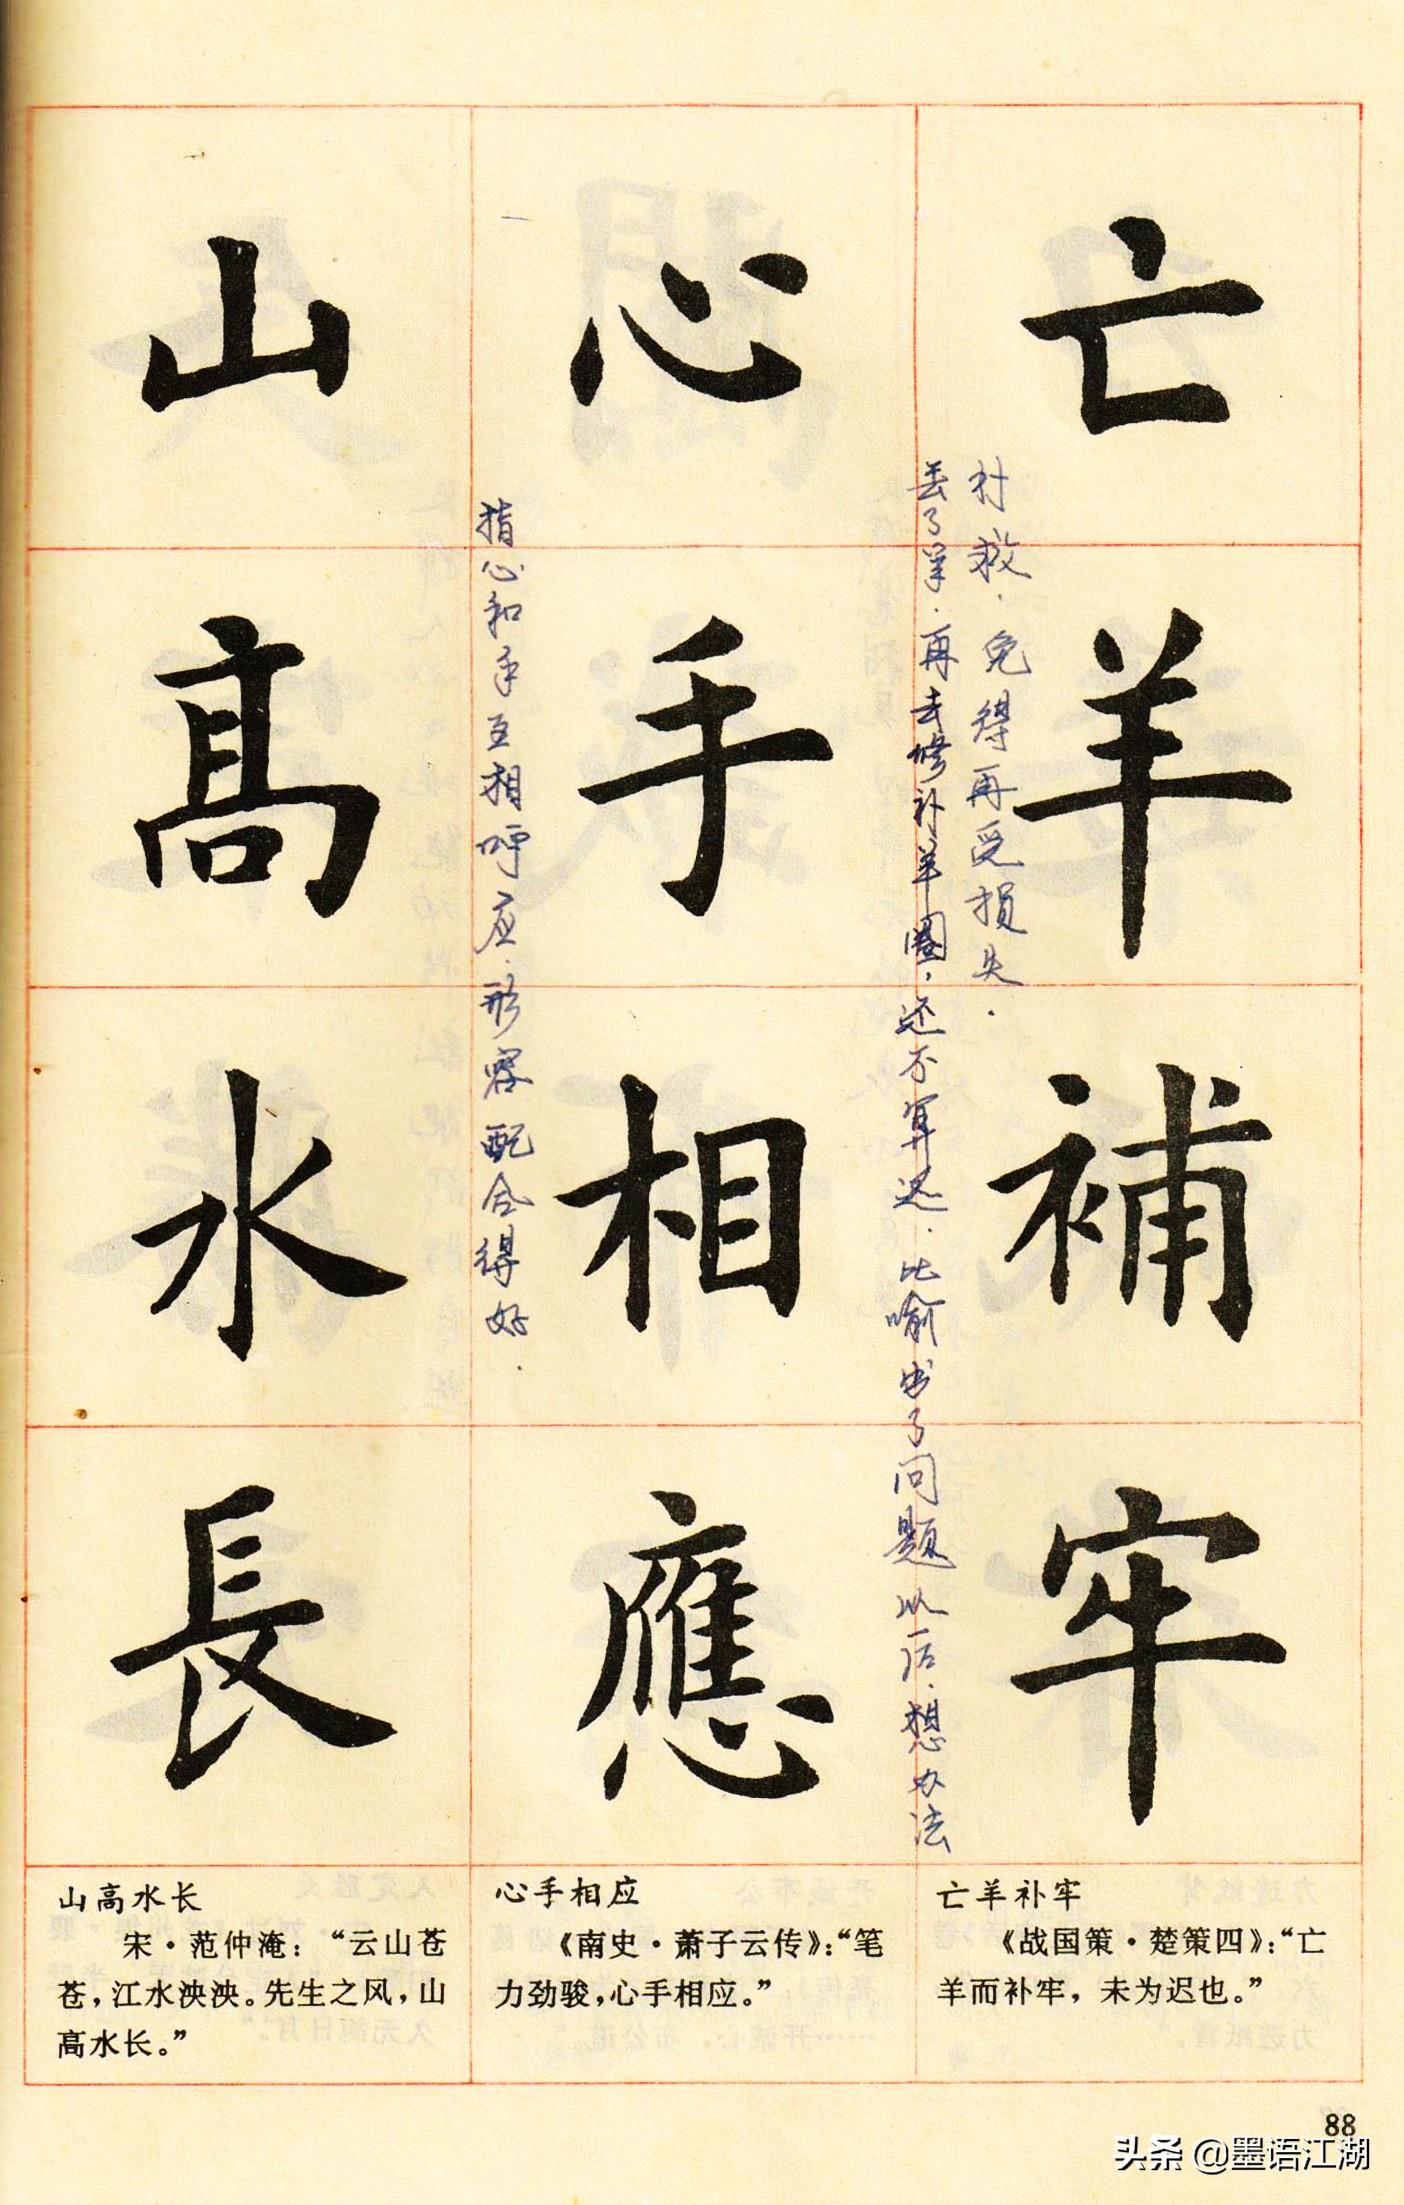 亡羊補牢
补救.免得再受损失.
丢了羊.再去修补羊圈，还不算迟.比喻出了问题以后.想办法
心手相應
指心和手互相呼应.形容配合得好.
山高水長
亡羊补牢
《战国策·楚策四》：“亡
羊而补牢，未为迟也。”
心手相应
《南史·萧子云传》：“笔
力劲骏，心手相应。”
山高水长
宋·范仲淹：“云山苍
苍，江水泱泱。先生之风，山
高水长。”
88
头条 @墨语江湖